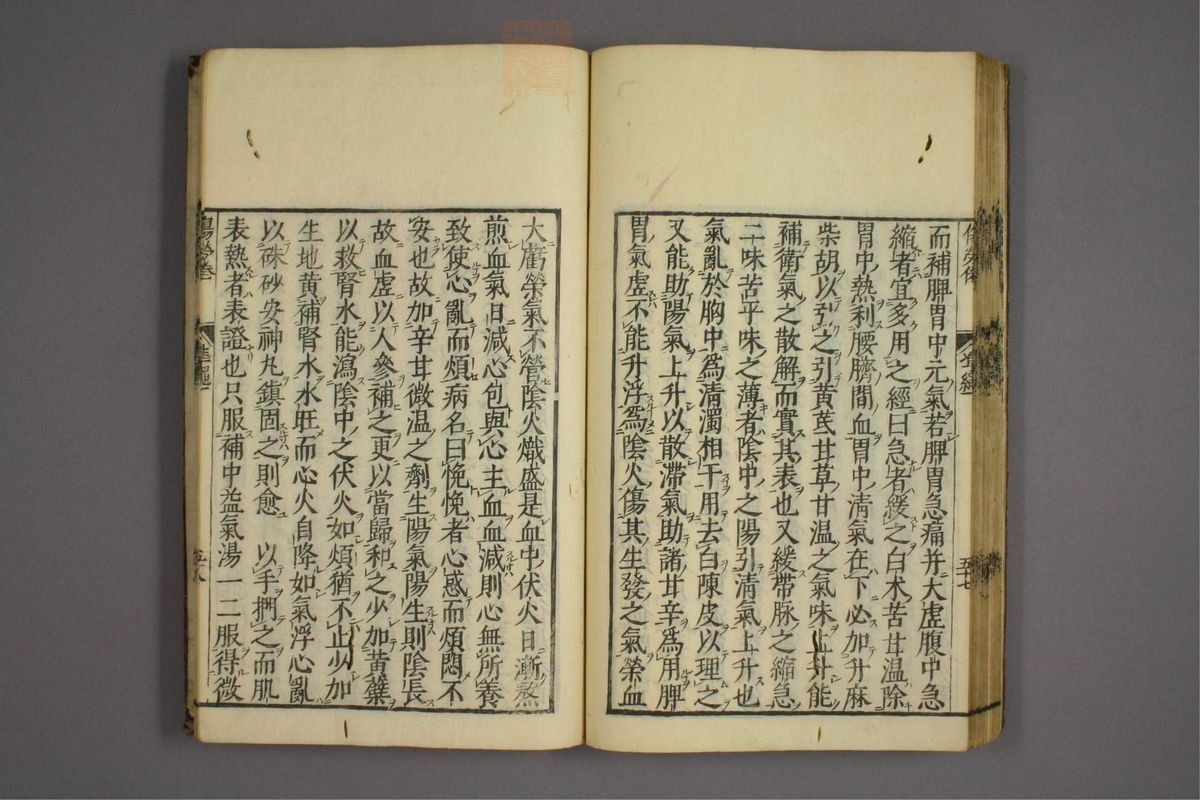 而補脾胃中元氣若脾胃急痛并大虛腹中急
縮者宜多用之經曰急者緩之白术苦甘温除
胃中熱利腰臍間血胃中清氣在下必加升麻
柴胡以引之引黃芪甘草甘温之氣味上升能
補衛氣之散解而實其表也又緩帶脉之縮急
二味苦平味之薄者陰中之陽引清氣上升也
氣亂於胸中爲清濁相干用去白陳皮以理之
又能助陽氣上升以散滯氣助諸甘辛爲用脾
胃氣虛不能升浮爲陰火傷其生發之氣榮血
五十七
大虧榮氣不營陰火熾盛是血中伏火日漸熬
煎血氣日減心包與心主血血減則心無所養
致使心亂而煩病名曰悗悗者心惑而煩悶不
安也故加辛甘微温之劑生陽氣陽生則陰長
故血虛以人參補之更以當歸和之少加黃蘗
以救腎水能瀉陰中之伏火如煩猶不止少加
生地黃補腎水水旺而心火自降如氣浮心亂
以硃砂安神丸鎮固之則愈 以手捫之而肌
表熱者表證也只服補中益氣湯一二服得微